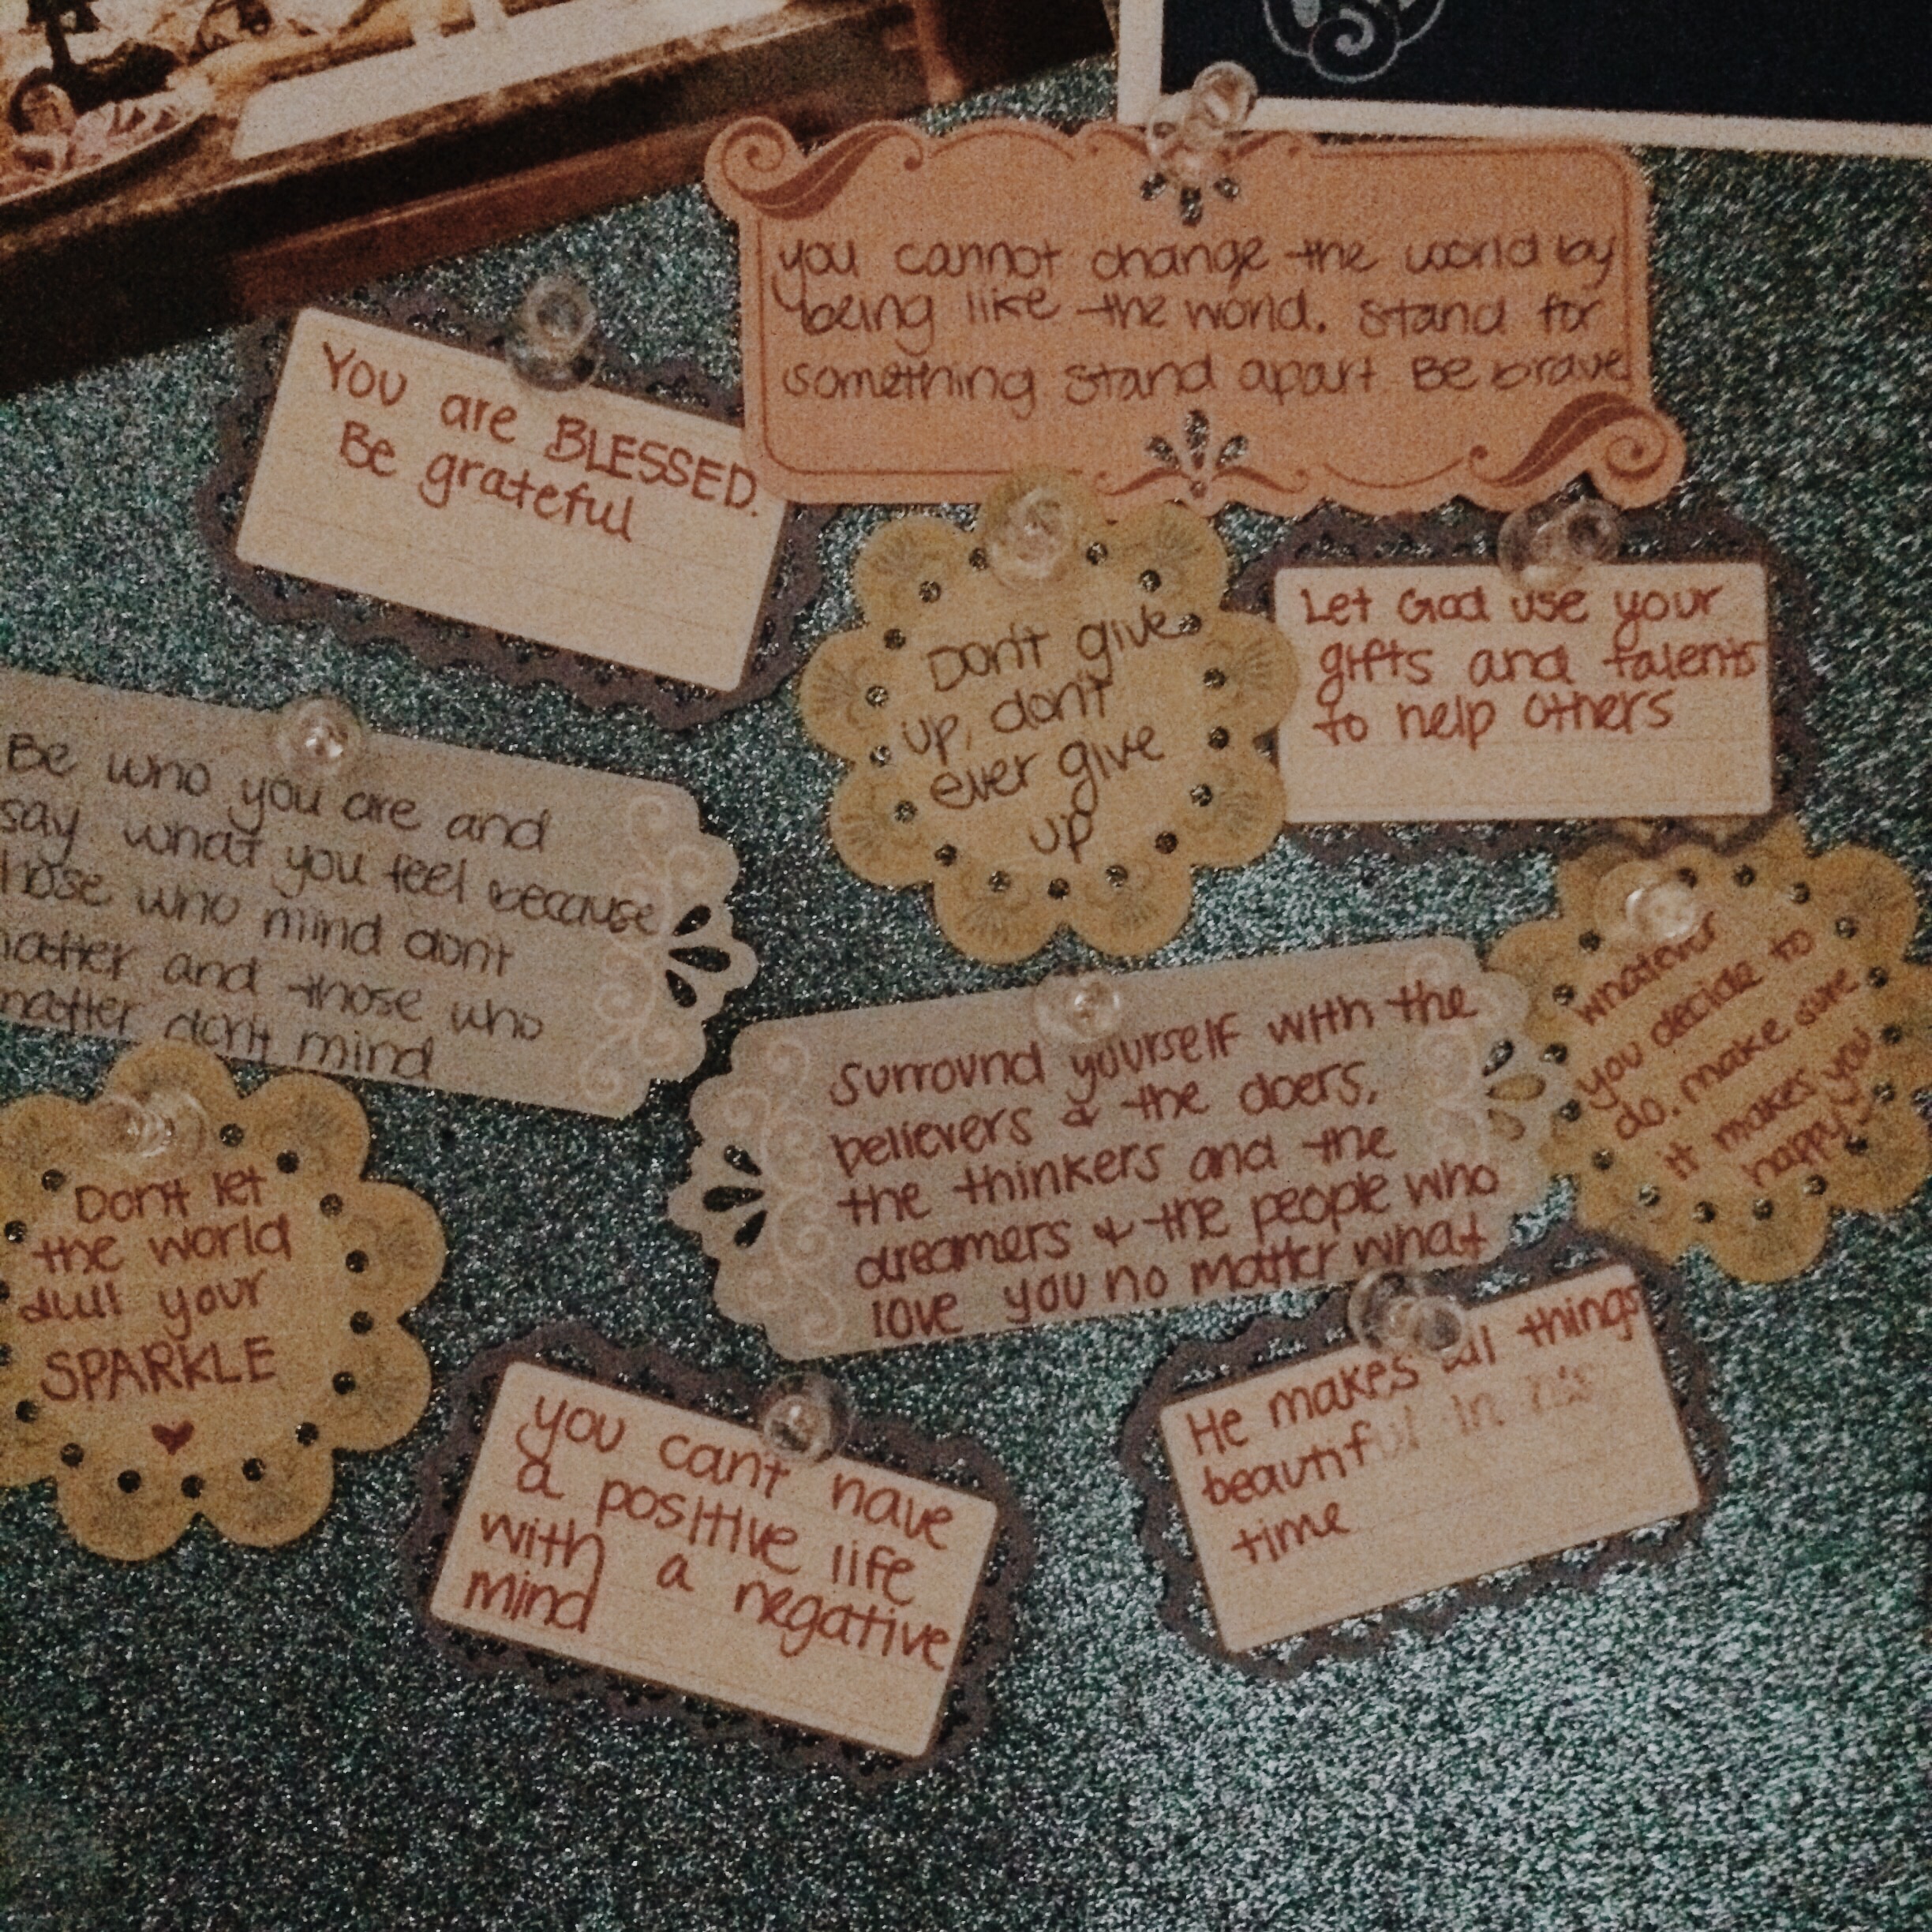 you cannot change the world by
being like the world. Stand for
something stand apart Be brave
You are BLESSED.
Be grateful
Don't give
up, don't
ever give
up
Let God use your
gifts and talents
to help others
Be who you are and
say what you feel because
hose who mind don't
atter and those who
matter don't mind
Surround yourself with the
believers & the doers,
the thinkers and the
dreamers & the people who
love you no matter what
whatever
you decide to
do, make sure
it makes you
happy
Don't let
the world
dull your
SPARKLE
you can't have
a positive life
with a negative
mind
He makes all things
beautiful in his
time